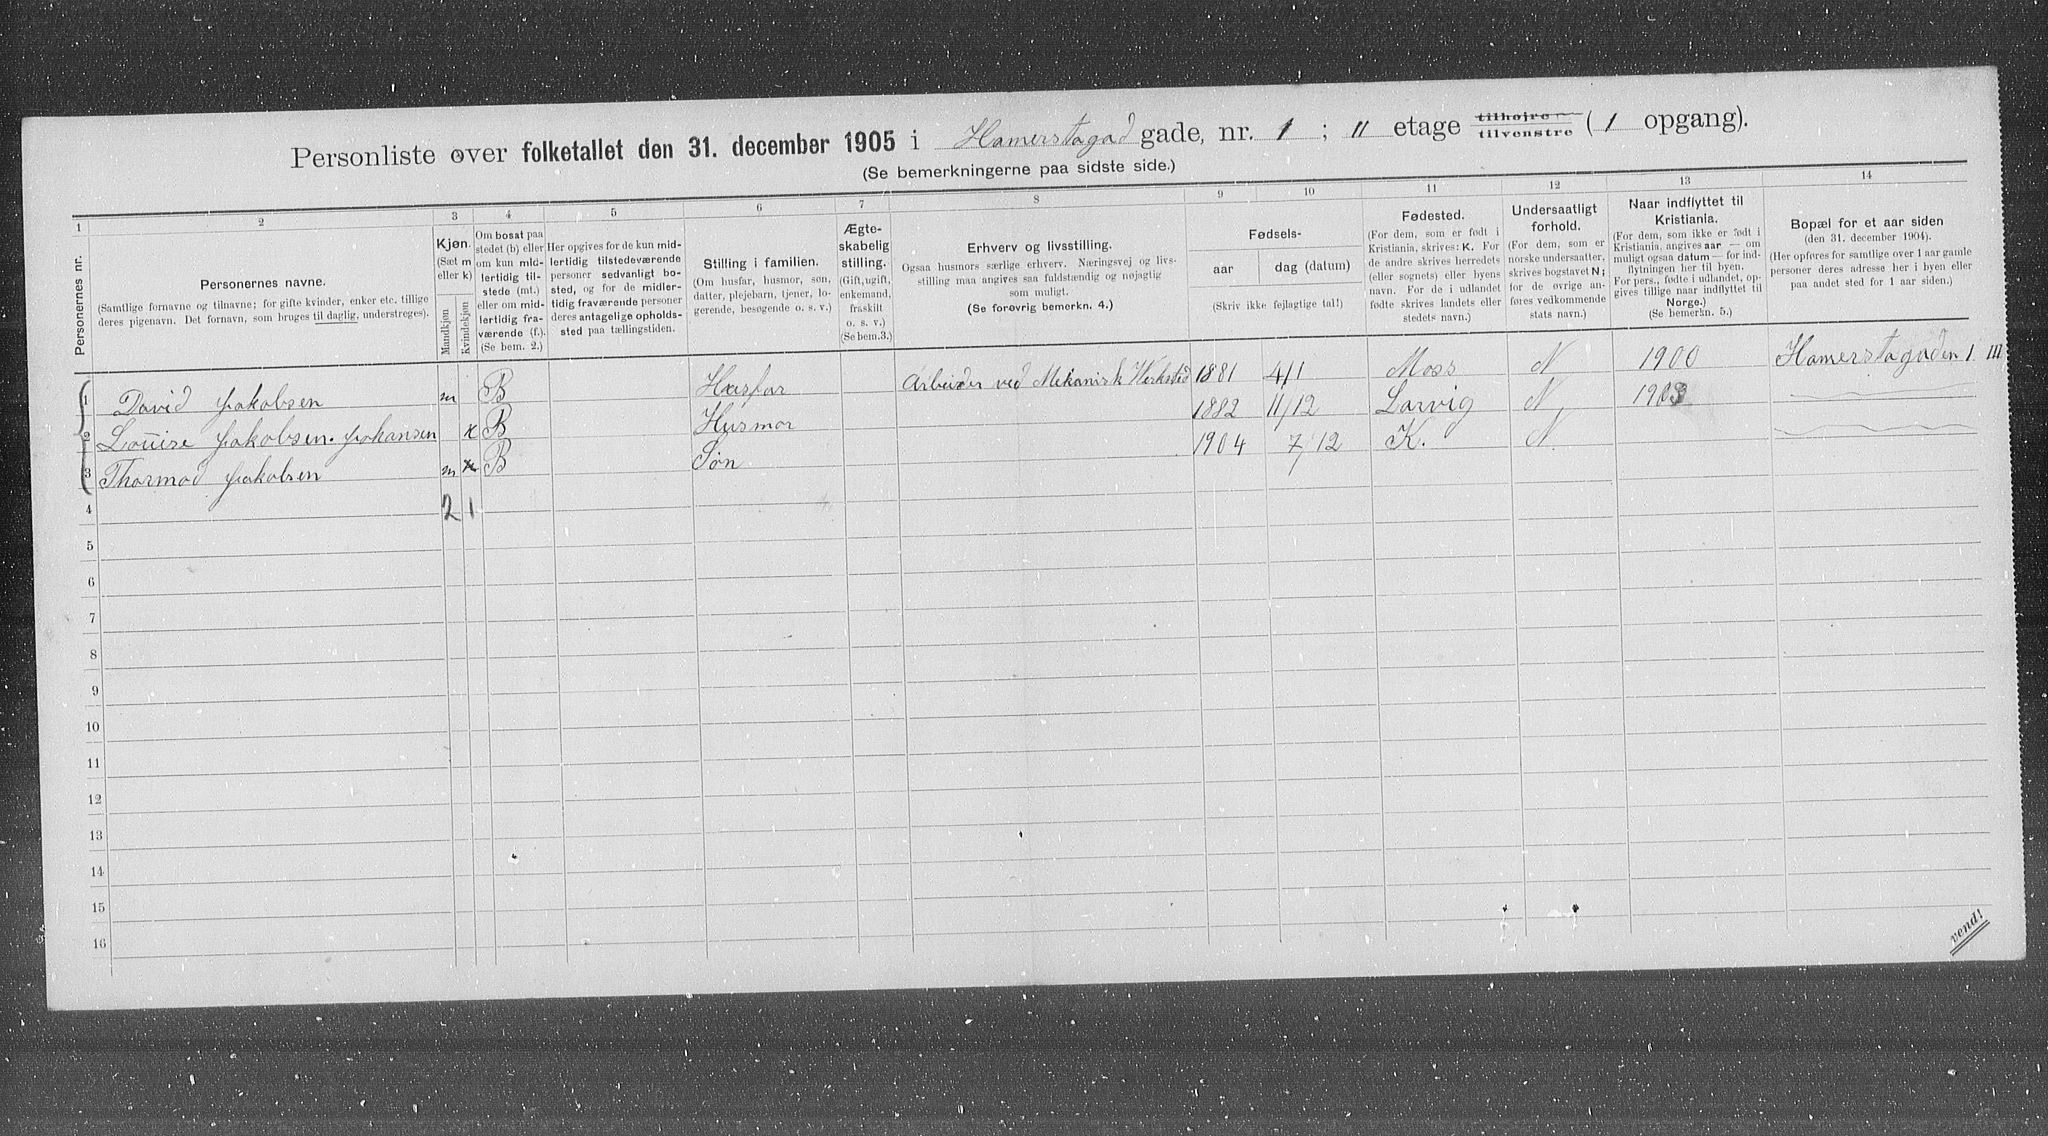 Personliste over folketallet den 31. december 1905 i Hamerstagad gade, nr. 1 ; II etage tilhøjre tilvenstre ( 1 opgang).
(Se bemerkningerne paa sidste side.)
1 2 3 4 5 6 7 8 9 10 11 12 13 14
Personernes nr.
Personernes navne.
(Samtlige fornavne og tilnavne; for gifte kvinder, enker etc. tillige
deres pigenavn. Det fornavn, som bruges til daglig, understreges).
Kjøn.
(Sæt m
eller k)
Mandkjøn
Kvindekjøn
Om bosat paa
stedet (b) eller
om kun mid-
lertidig til-
stede (mt.)
eller om mid-
lertidig fra-
værende (f.).
(Se bem. 2.)
Her opgives for de kun mid-
lertidig tilstedeværende
personer sedvanligt bo-
sted, og for de midler-
tidig fraværende personer
deres antagelige opholds-
sted paa tællingstiden.
Stilling i familien.
(Om husfar, husmor, søn,
datter, plejebarn, tjener, lo-
gerende, besøgende o. s. v.)
Ægte-
skabelig
stilling.
(Gift, ugift,
enkemand,
fraskilt
o. s. v.)
(Se bem.3.)
Erhverv og livsstilling.
Ogsaa husmors særlige erhverv. Næringsvej og livs-
stilling maa angives saa fuldstændig og nøjagtig
som muligt.
(Se forøvrig bemerkn. 4.)
Fødsels-
aar
dag (datum)
(Skriv ikke fejlagtige tal!)
Fødested.
(For dem, som er født i
Kristiania, skrives: K. For
de andre skrives herredets
(eller sognets) eller byens
navn. For de i udlandet
fødte skrives landets eller
stedets navn.)
Undersaatligt
forhold.
(For dem, som er
norske undersaatter,
skrives bogstavet N;
for de øvrige an-
føres vedkommende
stats navn.)
Naar indflyttet til
Kristiania.
(For dem, som ikke er født i
Kristiania, angives aar — om
muligt ogsaa datum — for ind-
flytningen her til byen.
For pers., fødte i udlandet, op-
gives tillige naar indflyttet til
Norge.)
(Se bemerkn. 5.)
Bopæl for et aar siden
(den 31. december 1904).
(Her opføres for samtlige over 1 aar gamle
personer deres adresse her i byen eller
paa andet sted for 1 aar siden.)
1 David Jakobsen m B Husfar Arbeider ved Mekanisk Verksted 1881 4/1 Moss N 1900 Hamerstagaden 1 III
2 Louise Jakobsen. Johansen k B Husmor 1882 11/12 Larvig N 1903
3 Thormod Jakobsen m B Søn 1904 7/12 K. N
4 2 1
5
6
7
8
9
10
11
12
13
14
15
16
vend!